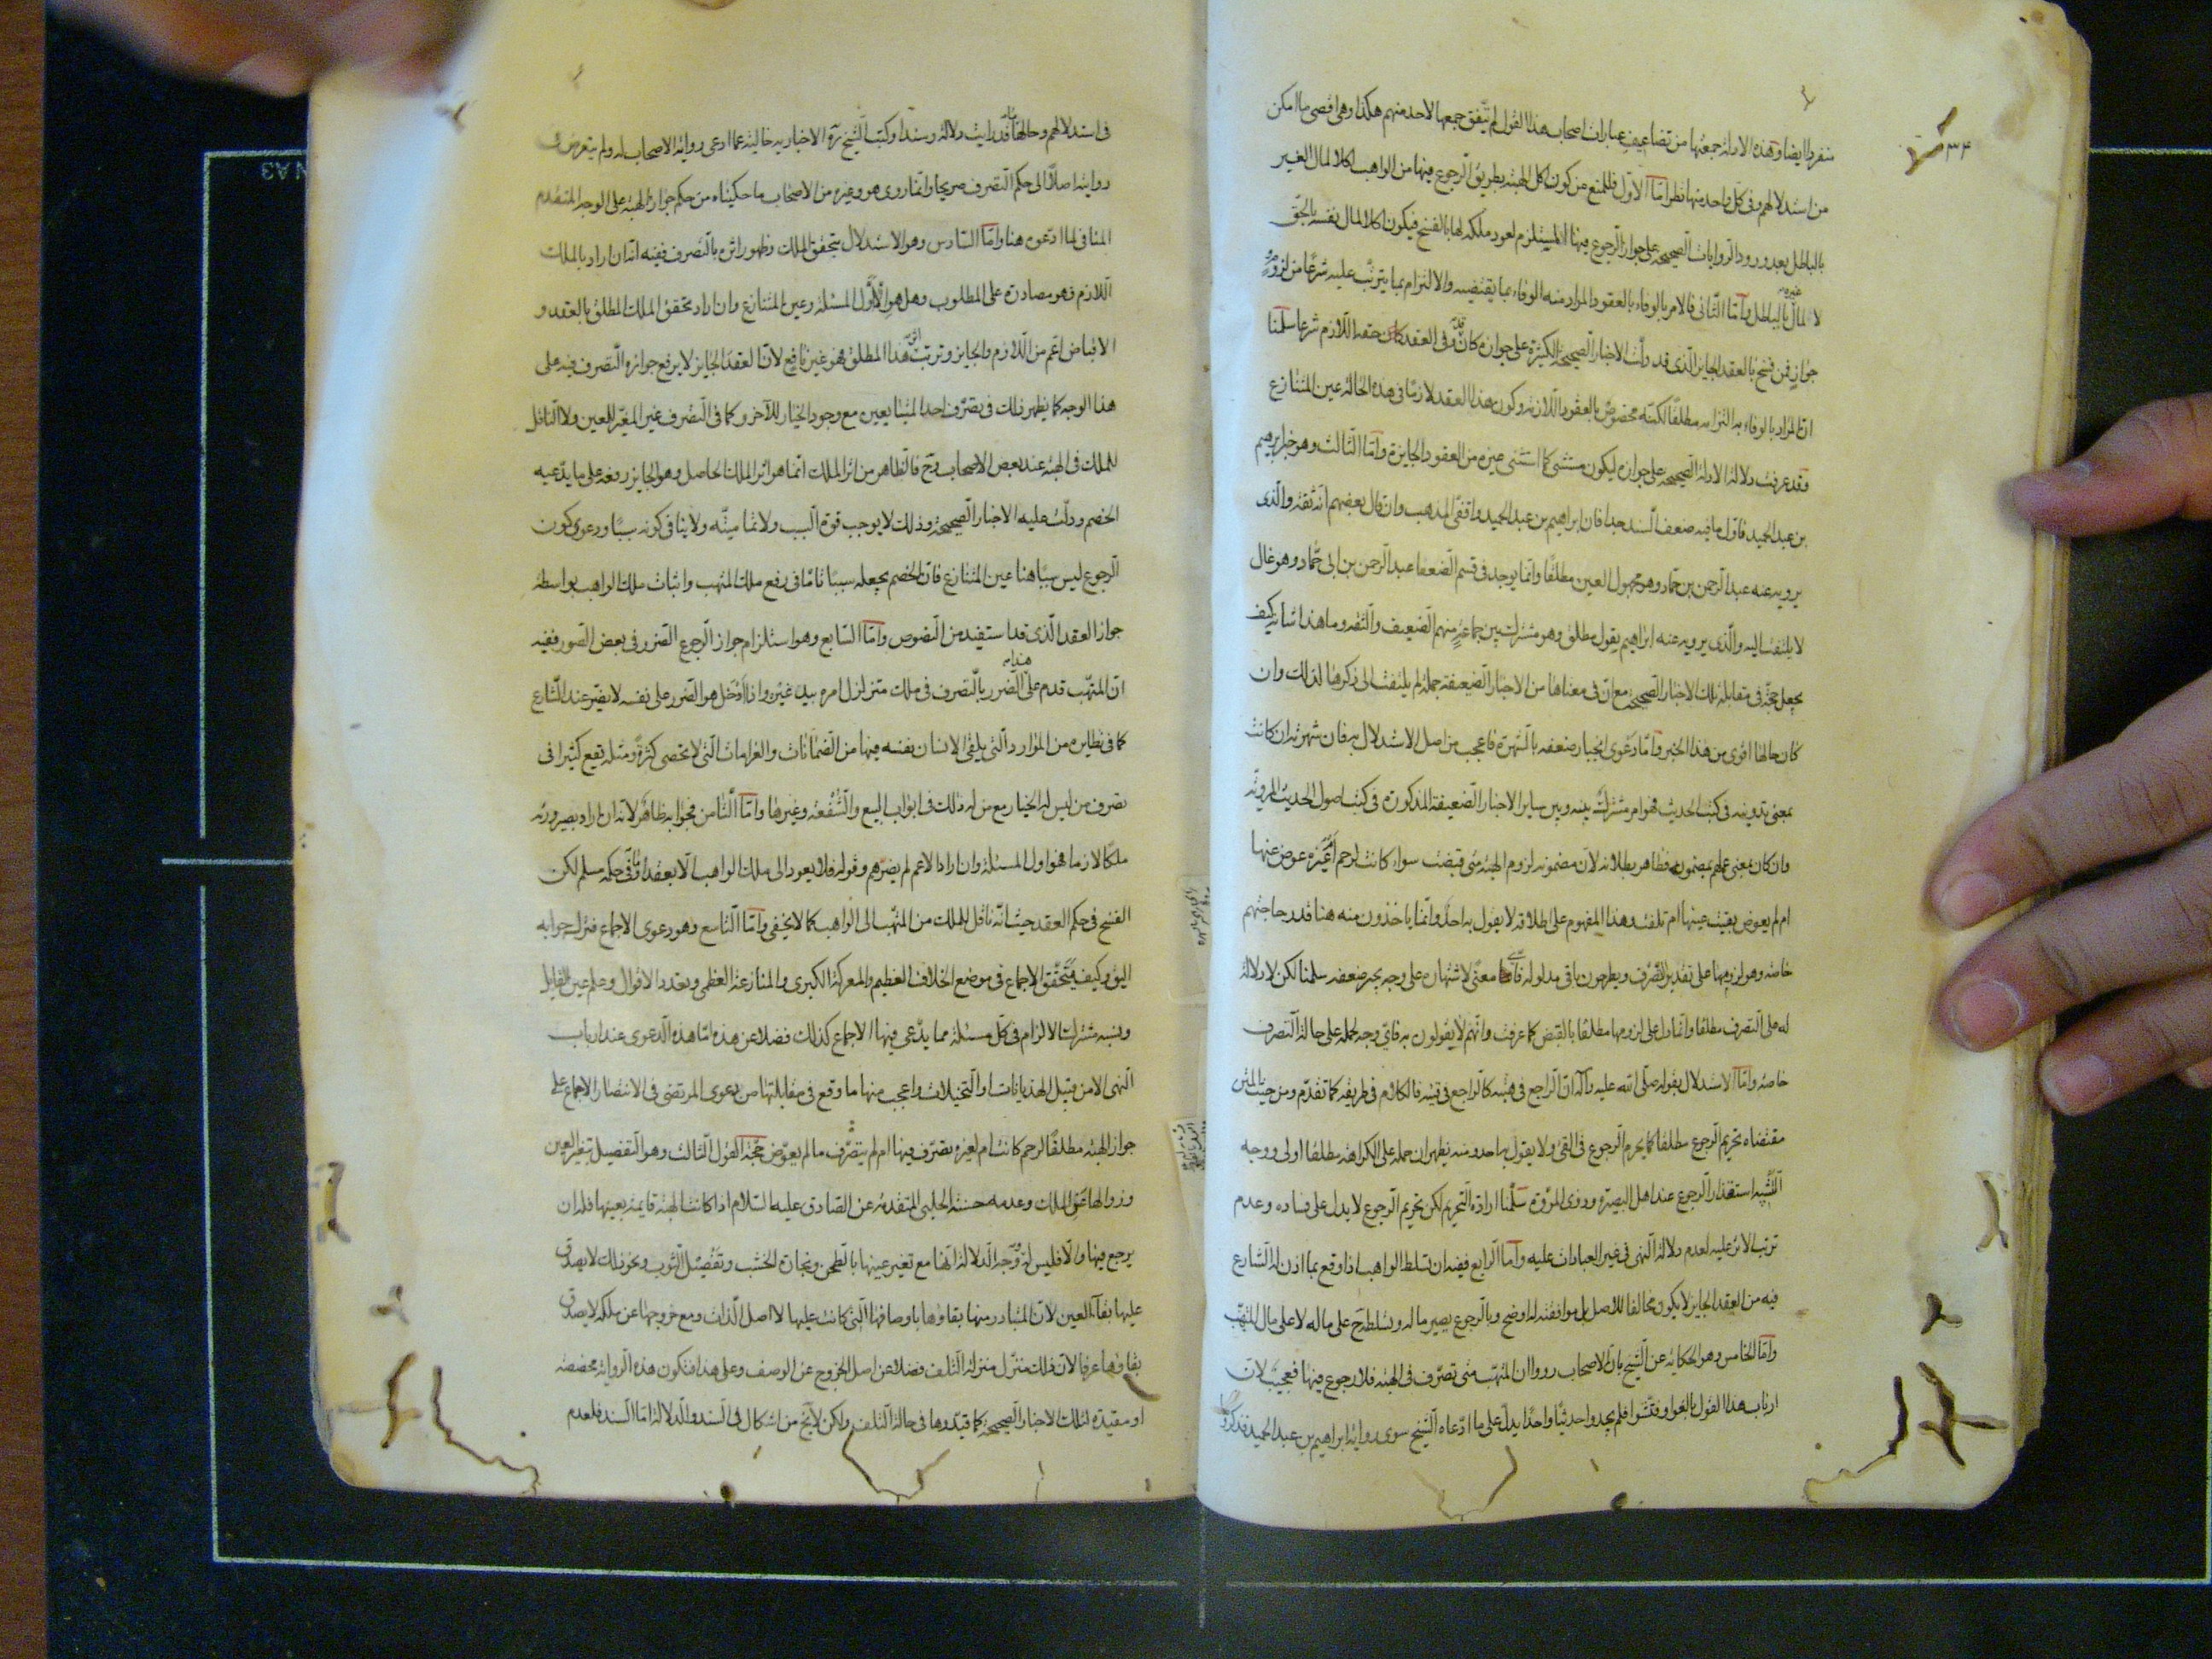 ٣٤
منفردا ايضا وهذه الادلة جمعتها من تضاعيف عبارات اصحاب هذا القول لم يتفق جمعها لاحد منهم هكذا وهى اقصى ما امكن
من استدلالهم وفى كل واحد منها نظر امّا الاوّل فللمنع من كون اكل الهبة بطريق الرجوع فيها من الواهب اكلا لمال الغير
بالباطل بعد ورود الروايات الصحيحة على جواز الرجوع فيها المستلزم لعود ملكه لها بالفسخ فيكون اكلا لمال نفسه بالحق
لا لمال غيره بالباطل وامّا الثانى فالامر بالوفاء بالعقود المراد منه الوفاء بما يقتضيه والالتزام بما يترتب عليه شرعا من لزوم او
جواز فمن فسخ بالعقد الجايز الذى قد دلت الاخبار الصحيحة الكثيرة على جوازه كان قد وفى العقد كان حقه اللازم شرعا سلمنا
ان المراد بالوفاء به التزامه مطلقا لكنه مخصوص بالعقود اللازمة وكون هذا العقد لازما فى هذه الحالة عين المتنازع
وقد عرفت دلالة الادلة الصحيحة على جوازه ليكون مستثنى كما استثنى غيره من العقود الجايزة وامّا الثالث وهو خبر ابرهيم
بن عبد الحميد فاول ما فيه ضعف السند جدا فان ابراهيم بن عبد الحميد واقفى المذهب وان قال بعضهم انه ثقة والذى
يرويه عنه عبد الرحمن بن حماد وهو مجهول العين مطلقا وانما يوجد فى قسم الضعفا عبد الرحمن بن ابى حمّاد وهو غال
لا يلتفت اليه والذى يرويه عنه ابراهيم يقول مطلق وهو مشترك بين جماعة منهم الضعيف والثقه وما هذا شانه كيف
يجعل حجة فى مقابلة تلك الاخبار الصحيحة مع ان فى معناها من الاخبار الضعيفة جملة لم يلتفت الى ذكرها لذلك وان
كان حالها اقوى من هذا الخبر وامّا دعوى انجبار ضعفه بالشهرة فاعجب من اصل الاستدلال به فان شهرته ان كانت
بمعنى تدوينه فى كتب الحديث فهو امر مشترك بينه وبين ساير الاخبار الضعيفة المذكورة فى كتب اصول الحديث المروية
وان كان بمعنى عملهم بمضمونه فظاهر بطلانه لان مضمونه لزوم الهبة متى قبضت سواء كانت لرحم ام غيره عوض عنها
ام لم يعوض بقيت عينها ام تلفت وهذا المفهوم على اطلاقه لا يقول به احد وانما ياخذون منه هنا قدر حاجتهم
خاصة وهو لزومها على تقدير التصرف ويطرحون باقى مدلوله فاى معنى لاشتهاره على وجه يجبر ضعفه سلمنا لكن لا دلالة
له على التصرف مطلقا وانما دل على لزومها مطلقا بالقبض كما عرفت وانهم لا يقولون به فاى وجه لحمله على حالة التصرف
خاصة وامّا الاستدلال بقوله صلى الله عليه وآله ان الراجع فى هبته كالراجع فى قيئه فالكلام فى طريقه كما تقدم ومن حيث المتن
مقتضاه تحريم الرجوع مطلقا كما يحرم الرجوع فى القئ ولا يقول به احد ومنه يظهر ان حمله على الكراهة مطلقا اولى ووجه
التشبيه استقذار الرجوع عند اهل البصيرة وذوى المروّة سلّمنا ارادة التحريم لكن تحريم الرجوع لا يدل على فساده وعدم
ترتب الاثر عليه لعدم دلالة النهى فى غير العبادات عليه وامّا الرابع ففيه ان تسلط الواهب اذا وقع بما اذن له الشارع
فيه من العقد الجايز لا يكون مخالفا للاصل بل موافقته له اوضح وبالرجوع يصير ماله وتسلطه ح على ماله لا على مال المتهب
وامّا الخامس وهو الحكاية عن الشيخ بان الاصحاب رووا ان المتهب متى تصرّف فى الهبة فلا رجوع فيها فعجيب لان
ارباب هذا القول بالغوا وفتشوا فلم يجدوا حديثا واحدا يدل على ما ادّعاه الشيخ سوى رواية ابراهيم بن عبد الحميد فذكروها
فى استدلالهم وحالها ما قد رايت دلالة وسندا وكتب الشيخ ره الاخبارية خالية عما ادعى رواية الاصحاب له ولم يتعرض فى
رواية اصلا الى حكم التصرف صريحا وانما روى هو وغيره من الاصحاب ما حكيناه من حكم جواز الهبة على الوجه المتقدم
المنافى لما ادعوه هنا وامّا السّادس وهو الاستدلال بتحقق الملك وظهور اثره بالتصرف ففيه انه ان اراد بالملك
اللازم فهو مصادرة على المطلوب وهل هو الّا اوّل المسئلة وعين المتنازع وان اراد تحقق الملك المطلق بالعقد و
الاقباض اعم من اللازم والجايز وترتب اثر هذا المطلق فهو غير نافع لان العقد الجايز لا يرفع جوازه التصرف فيه على
هذا الوجه كما يظهر ذلك فى تصرّف احد المتبايعين مع وجود الخيار للآخر وكما فى التصرف غير المغيّر للعين ولا الناقل
للملك فى الهبة عند بعض الاصحاب وح فالظاهر من اثر الملك انما هو اثر الملك الحاصل وهو الجايز رفعه على ما يدّعيه
الخصم ودلّت عليه الاخبار الصحيحة وذلك لا يوجب قوة السبب ولا تماميّته ولا ينافى كونه سببا ودعوى كون
الرجوع ليس سببا هنا عين المتنازع فان الخصم يجعله سببا تامّا فى رفع ملك المتهب واثبات ملك الواهب بواسطة
جواز العقد الّذى قد استفيد من النصوص وامّا السّابع وهو استلزام جواز الرجوع الضرر فى بعض الصّور ففيه
ان المتهّب قدم على هذا الضرر بالتصرف فى ملك متزلزل امره بيد غيره واذا ادخل هو الضرر على نفسه لا يضرّ عند الشارع
كما فى نظايره من الموارد الّتى يلقى الانسان نفسه فيها من الضمانات والغرامات التى لا تحصى كثرة ومثله يقع كثيرا فى
تصرف من ليس له الخيار مع من له ذلك فى ابواب البيع والشُفعة وغيرها وامّا الثّامن فجوابه ظاهر لانه ان اراد بصيرورته
ملكا لازما فهو اول المسئلة وان اراد الاعم لم يضرّهم وقوله فلا يعود الى ملك الواهب الّا بعقد او فى حكمه مسلم لكن
الفسخ فى حكم العقد حيث انه ناقل للملك من المتهب الى الواهب كما لا يخفى وامّا التّاسع وهو دعوى الاجماع فترك جوابه
اليق وكيف يتحقق الاجماع فى موضع الخلاف العظيم والمعركة الكبرى والمنازعة العظمى وتعدد الاقوال وعلم عين القايل
ونسبه مشترك الالزام فى كل مسئلة مما يدّعى فيها الاجماع كذلك فضلا عن هذه امّا هذه الدعوى عند ارباب
النهى الا من قبيل الهذيانات او التخيلات واعجب منها ما وقع فى مقابلتها من دعوى المرتضى فى الانتصار الاجماع على
جواز الهبة مطلقا لرحم كانت ام لغيره تصرّف فيها ام لم يتصرّف ما لم يعوّض حجّة القول الثالث وهو التفصيل بتغير العين
وزوالها عن الملك وعدمه حسنة الحلبى المتقدمة عن الصّادق عليه السّلام اذا كانت الهبة قايمة بعينها فله ان
يرجع فيها والّا فليس له ووجه الدلالة انها مع تغير عينها بالطحن ونجارة الخشب وتفصيل الثوب ونحو ذلك لا يصدق
عليها بقآء العين لان المتبادر منها بقاوها باوصافها الّتى كانت عليها لا اصل الذات ومع خروجها عن ملكه لا يصدق
بقاؤها عرفا لان ذلك منزّل منزلة التلف فضلا عن اصل الخروج عن الوصف وعلى هذا فتكون هذه الرواية مخصصة
او مقيدة لتلك الاخبار الصحيحة كما قيّدوها فى حالة التلف ولكن لا يخ من اشكال فى السند والدلالة امّا السند فلعدم